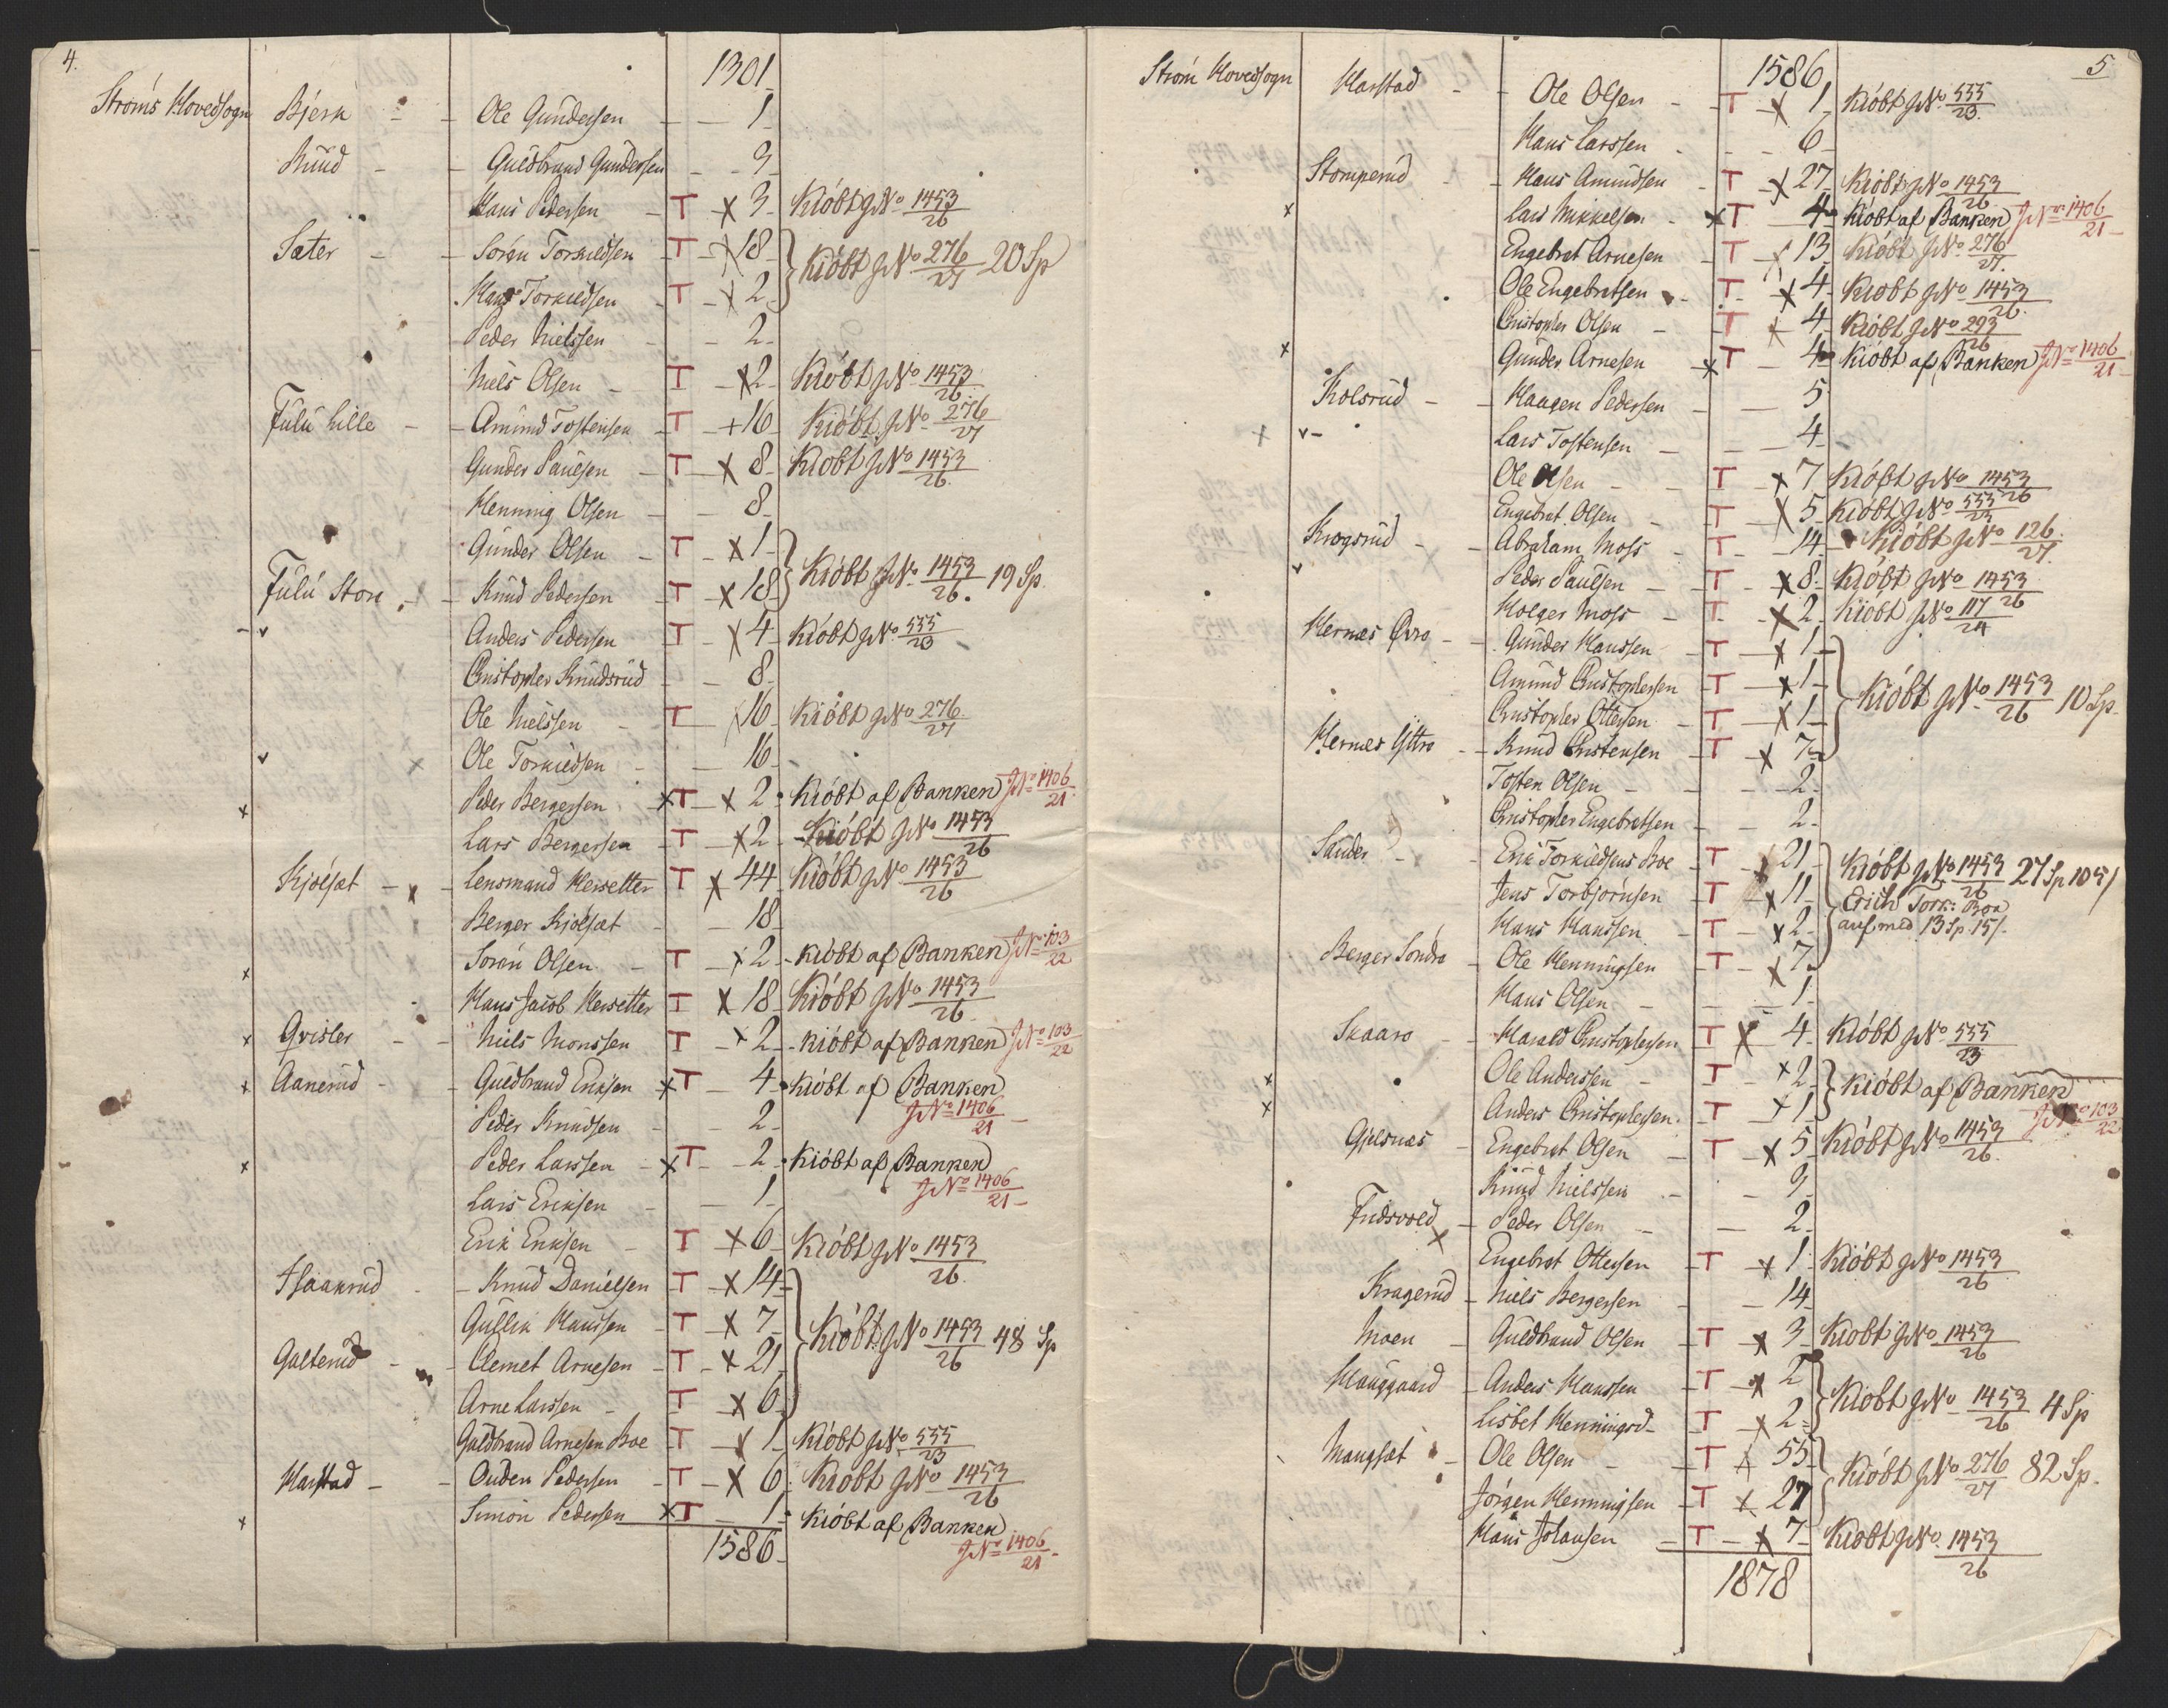 4.
1301
Ströms Hovedsogn Bjerk - - Ole Gundersen - - 1
Ruud - - Guldbrand Gundersen - - 9
Hans Pedersen - T - x 3 - Kióbt JNo 1453/26
Sæter - - Sörën Torkildsen - T - x 18 } Kióbt JNo 276/27 20 Sp
Hans Torkildsen - T - x 2 }
Peder Nielssen - - 2
Niels Olsen - T - x 2 - Kióbt JNo 1453/26
Fulu Lille - - Amund Tostensen - T - + 16 - Kióbt JNo 276/27
Gunder Paulsen - T - x 8 - Kióbt JNo 1453/26
Henning Olsen - - 8
Gunder Olsen - T - x 1 } Kióbt JNo 1453/26. 19 Sp
Fulu Store - - Knud Pedersen - T - x 18 }
- v Anders Pedersen T - x 4 - Kióbt JNo 555/23
Christopher Knudsrud - 8
Ole Nielssen - T - x 16 - Kióbt JNo 276/27
v x Ole Torkildsen - - 16
x Peder Bergersen xT - x 2 - Kióbt af Banken JNo 1406/21
Lars Bergersen - T - x 2 - Kióbt JNo 1453/26
Kjölsæt - x - Lensmand Heisetter T x 44 Kióbt JNo 1453/26
Berger Kjölsæt - 18
x Sörën Olsen - T - x 2 - Kióbt af Banken JNo 103/22
Hans Jacob Heisetter T x 18 Kióbt JNo 1453/26
x Qvisler - - Niels Monssen T - x 2 - Kióbt af Banken JNo 103/22
x Aanerud - - Guldbrand Eriksen xT - 4 - Kióbt af Banken
JNo 1406/21
Peder Knudsen - - 2
x Peder Larssen - xT - 2 - Kióbt af Banken
JNo 1406/21
Lars Eriksen - - 1
Erik Eriksen - T x 6 Kióbt JNo 1453/26
Isaakrud - - Knud Danielsen T - x 14 }
Gullik Hanssen - T - x 7 } Kióbt JNo 1453/26 48 Sp
Galterud - - Clemet Arnesen - T - x 21 }
Arne Larssen - T - x 6 }
Guldbrand Arnesen Boe - T - x 1 - Kióbt JNo 555/23
Harstad - - Ouden Pedersen - T - x 6 - Kióbt JNo 1453/26
x Simon Pedersen xT - 1 - Kióbt af Banken
JNo 1406/21
1586
5
1586
Ström Hovedsogn Harstad - - Ole Olsen - - T - x 1 Kióbt JNo 555/23
Hans Larssen - - 6
Stomperud - - Hans Amundsen - T - x 27 Kióbt JNo 1453/26
x Lars Mikkelsen - xT - 4 - Kióbt af Banken JNo 1406/21
Engebret Arnesen - T - x 13 Kióbt JNo 276/27
Ole Engebretsen - T - x 4 - Kióbt JNo 1453/26
Christopher Olsen - T x 4 - Kióbt JNo 293/26
x Gunder Arnesen - xT - 4 - Kióbt af Banken JNo 1406/21
Kolsrud - - Haagen Pedersen - - 5
x v - Lars Tostensen - - 4
Ole Olsen - - T - x 7 Kióbt JNo 1453/26
Engebret Olsen - T - x 5 Kióbt JNo 555/23
Krogsrud - - Abraham Moss - T - 14 - Kióbt JNo 126/27
v Peder Paulsen - T - x 8 Kióbt JNo 1453/26
Holger Moss - T - x 2 Kióbt JNo 117/24
Hernæs Övre - - Gunder Hanssen - T - x 1 }
Amund Christophersen - T - x 1 } Kióbt JNo 1453/26 10 Sp
Christopher Ottersen - T - x 1 }
Hernæs Yttre - - Knud Christensen - T - x 7 }
Tosten Olsen - - 2
Christopher Engebretsen - - 2
Sander - - Erik Torkildsens Boe - T - x 21 } Kióbt JNo 1453/26 27 Sp 105/
Jens Torbjörnsen - T - x 11 } Erich Tork: Boe
Hans Hanssen - T - x 2 } anf. med 13 Sp. 15/.
Berger Söndre - Ole Henningsen - T - x 7 }
Hans Olsen - - 1
Skaaro - - Harald Christophersen T x 4 Kióbt JNo 555/23
x Ole Anderssen - T - x 2 } Kióbt af Banken
x Anders Christophersen - T - x 1 } JNo 103/22
Gjelsnæs - Engebret Olsen - T - x 5 Kióbt JNo 1453/26
Knud Nielssen - - 9
Fridsvold - Peder Olsen - - 2
x Engebret Ottersen - T - x 1 Kióbt JNo 1453/26
Kragerud - Niels Bergersen - - 14
Moen - Guldbrand Olsen - T - x 3 Kióbt JNo 1453/26
Hauggaard - Anders Hanssen - T - x 2 } Kióbt JNo 1453/26 4 Sp
Lisbet Henningsd - T - x 2 }
Mangsæt - Ole Olsen - T - x 55 } Kióbt JNo 276/27 82 Sp.
Jörgen Henningsen - T - x 27 }
Hans Johansen - T - x 7 Kióbt JNo 1453/26
1878